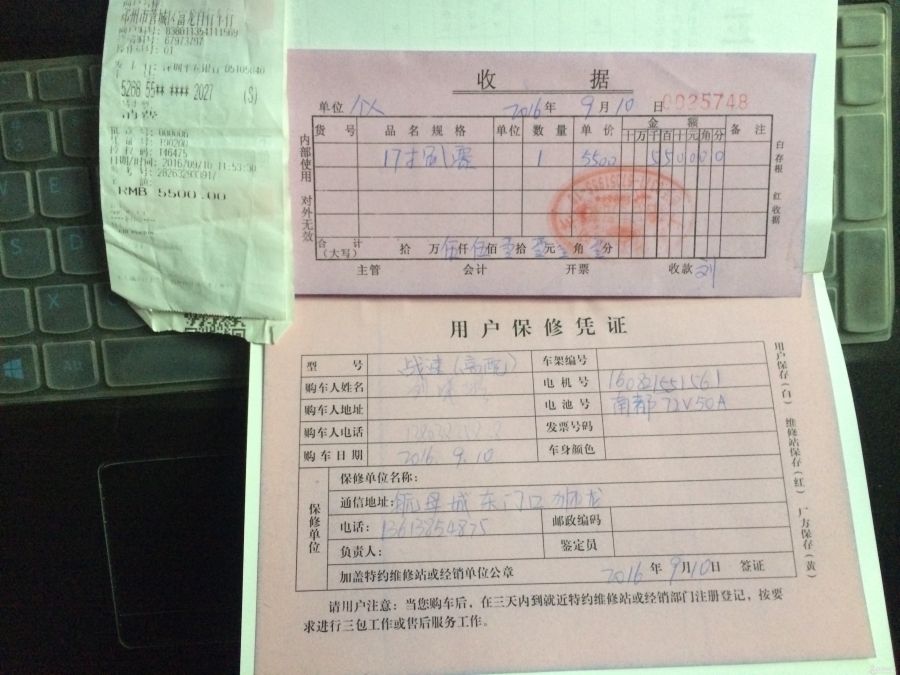 5268 55** **** 2027 (S)
消费
日期/时间: 2016/09/10 11:53:30
RMB 5500.00
收 据
单位 个人 2016年 9月 10日 0025748
货 号 品 名 规 格 单位 数 量 单 价 金 额 备 注
十 万 千 百 十 元 角 分
1 5500 550000
内部使用 对外无效
白存根 红收据
合 计 (大写) 拾 万 伍仟 伍佰 拾 元 角 分
主管 会计 开票 收款 刘
用户保修凭证
型 号 战速(高配) 车架编号
购车人姓名 电 机 号 16081551561
购车人地址 电 池 号 南都72V50A
购车人电话 发票号码
购 车 日 期 2016.9.10 车身颜色
保修单位
保修单位名称:
通信地址: 城东门口
电话: 13613854875 邮政编码
负责人: 鉴定员
加盖特约维修站或经销单位公章 2016年 9月10日 签证
用户保存(白) 维修站保存(红) 厂方保存(黄)
请用户注意:当您购车后,在三天内到就近特约维修站或经销部门注册登记,按要
求进行三包工作或售后服务工作。